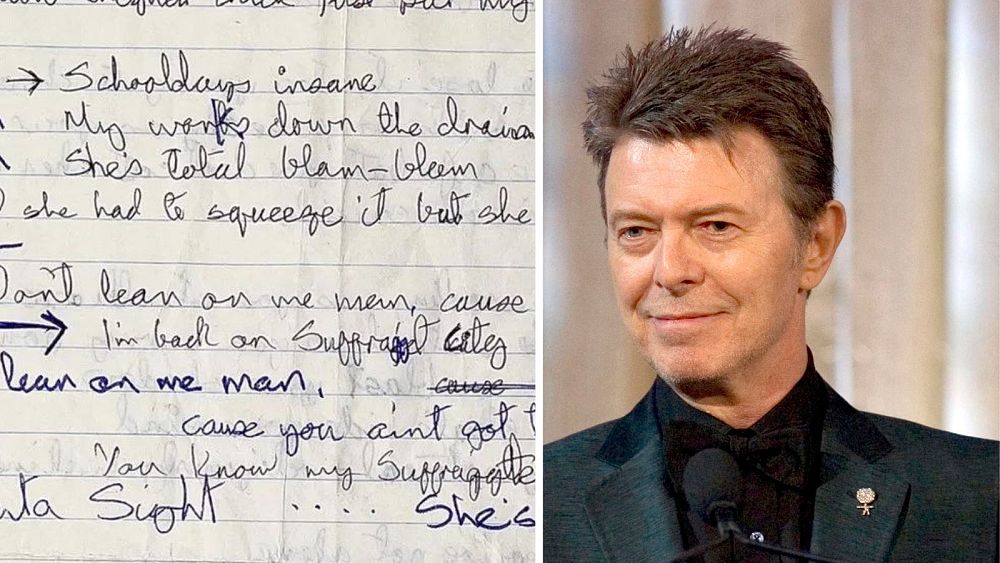 → Schooldays insane
My works down the drain
She's total blam-blam
she had to squeeze it but she
Don't lean on me man, cause
→ I'm back on Suffragit City
lean on me man, cause
cause you aint got t
You know my Suffragette
ta Sight .... She's